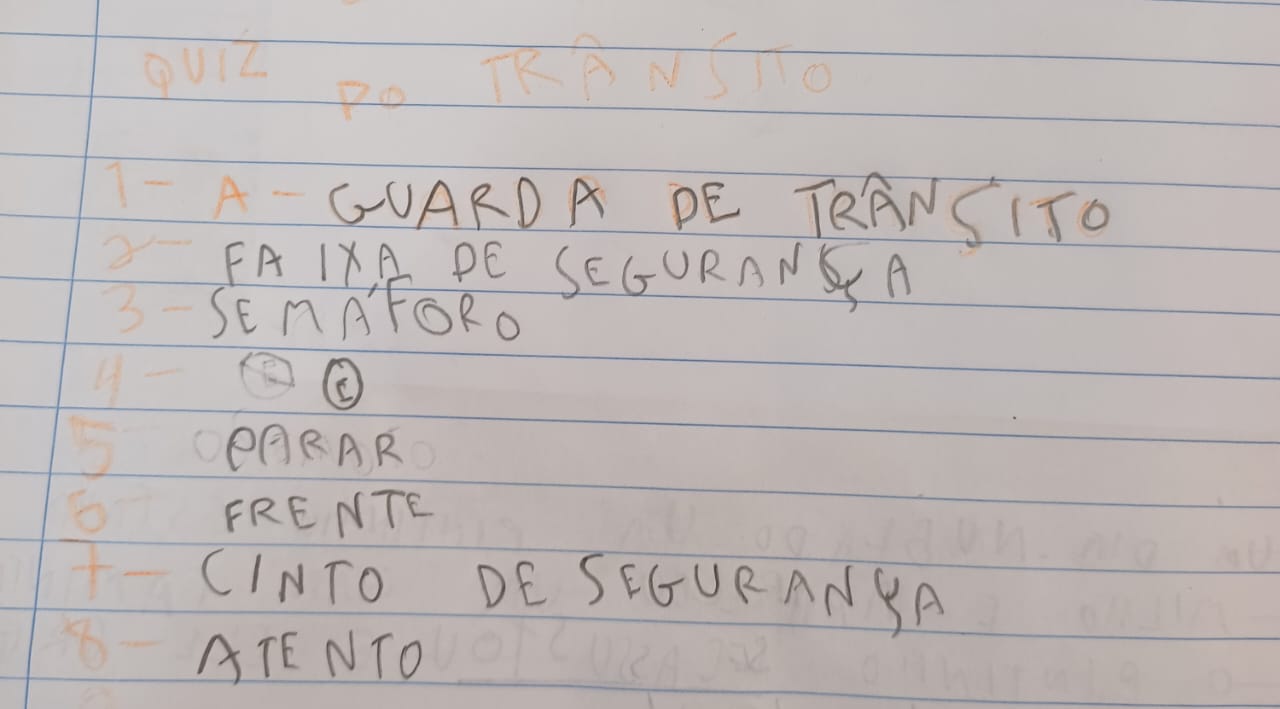 QUIZ DO TRÂNSITO
1- A- GUARDA DE TRÂNSITO
2- FAIXA DE SEGURANÇA
3- SEMÁFORO
4- C
5- PARAR
6- FRENTE
7- CINTO DE SEGURANÇA
8- ATENTO